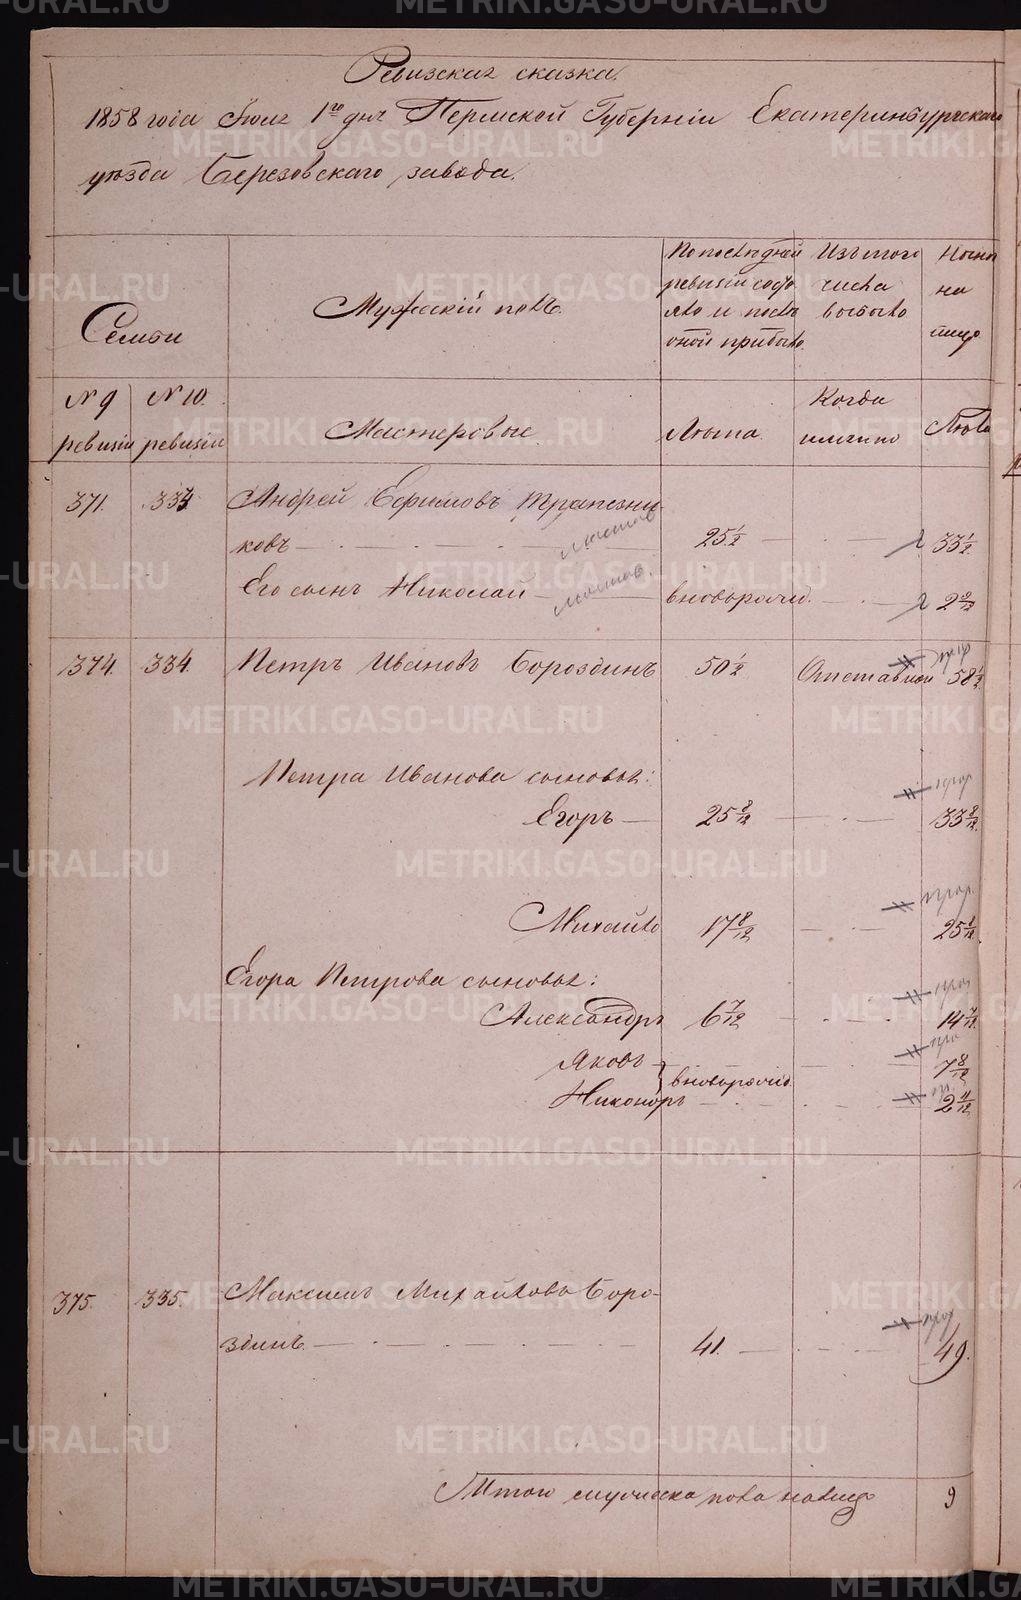 Ревизская сказка.
1858 года Іюля 1го дня Пермской Губерніи Екатеринбургскаго
уѣзда Березовскаго завода.
Семьи
Мужескій полъ.
По последней ревизіи состо яло и послѣ оной прибыло.
Изъ того числа выбыло
Ныне на лицо
№ 9 ревизіи
№ 10. ревизіи
Мастеровые.
Лѣта.
Когда именно
Лѣта
371. 333 Андрей Ефимовъ Трапезни
ковъ 25 1/2 33 1/2
Его сынъ Николай вноворожд. 2
374. 334. Петръ Ивановъ Бороздинъ 50 1/2 Отставной 58 1/2
Петра Иванова сыновья:
Егоръ 25 8/12 33 8/12
Михайло 17 8/12 25 8/12
Егора Петрова сыновья:
Александръ 6 7/12 14 7/12
Яковъ 7 8/12
вноворожд.
Никоноръ 2 11/12
375. 335. Максимъ Михайловъ Боро-
здинъ 41. 49.
Итого мужеска пола налицо 9
METRIKI.GASO-URAL.RU